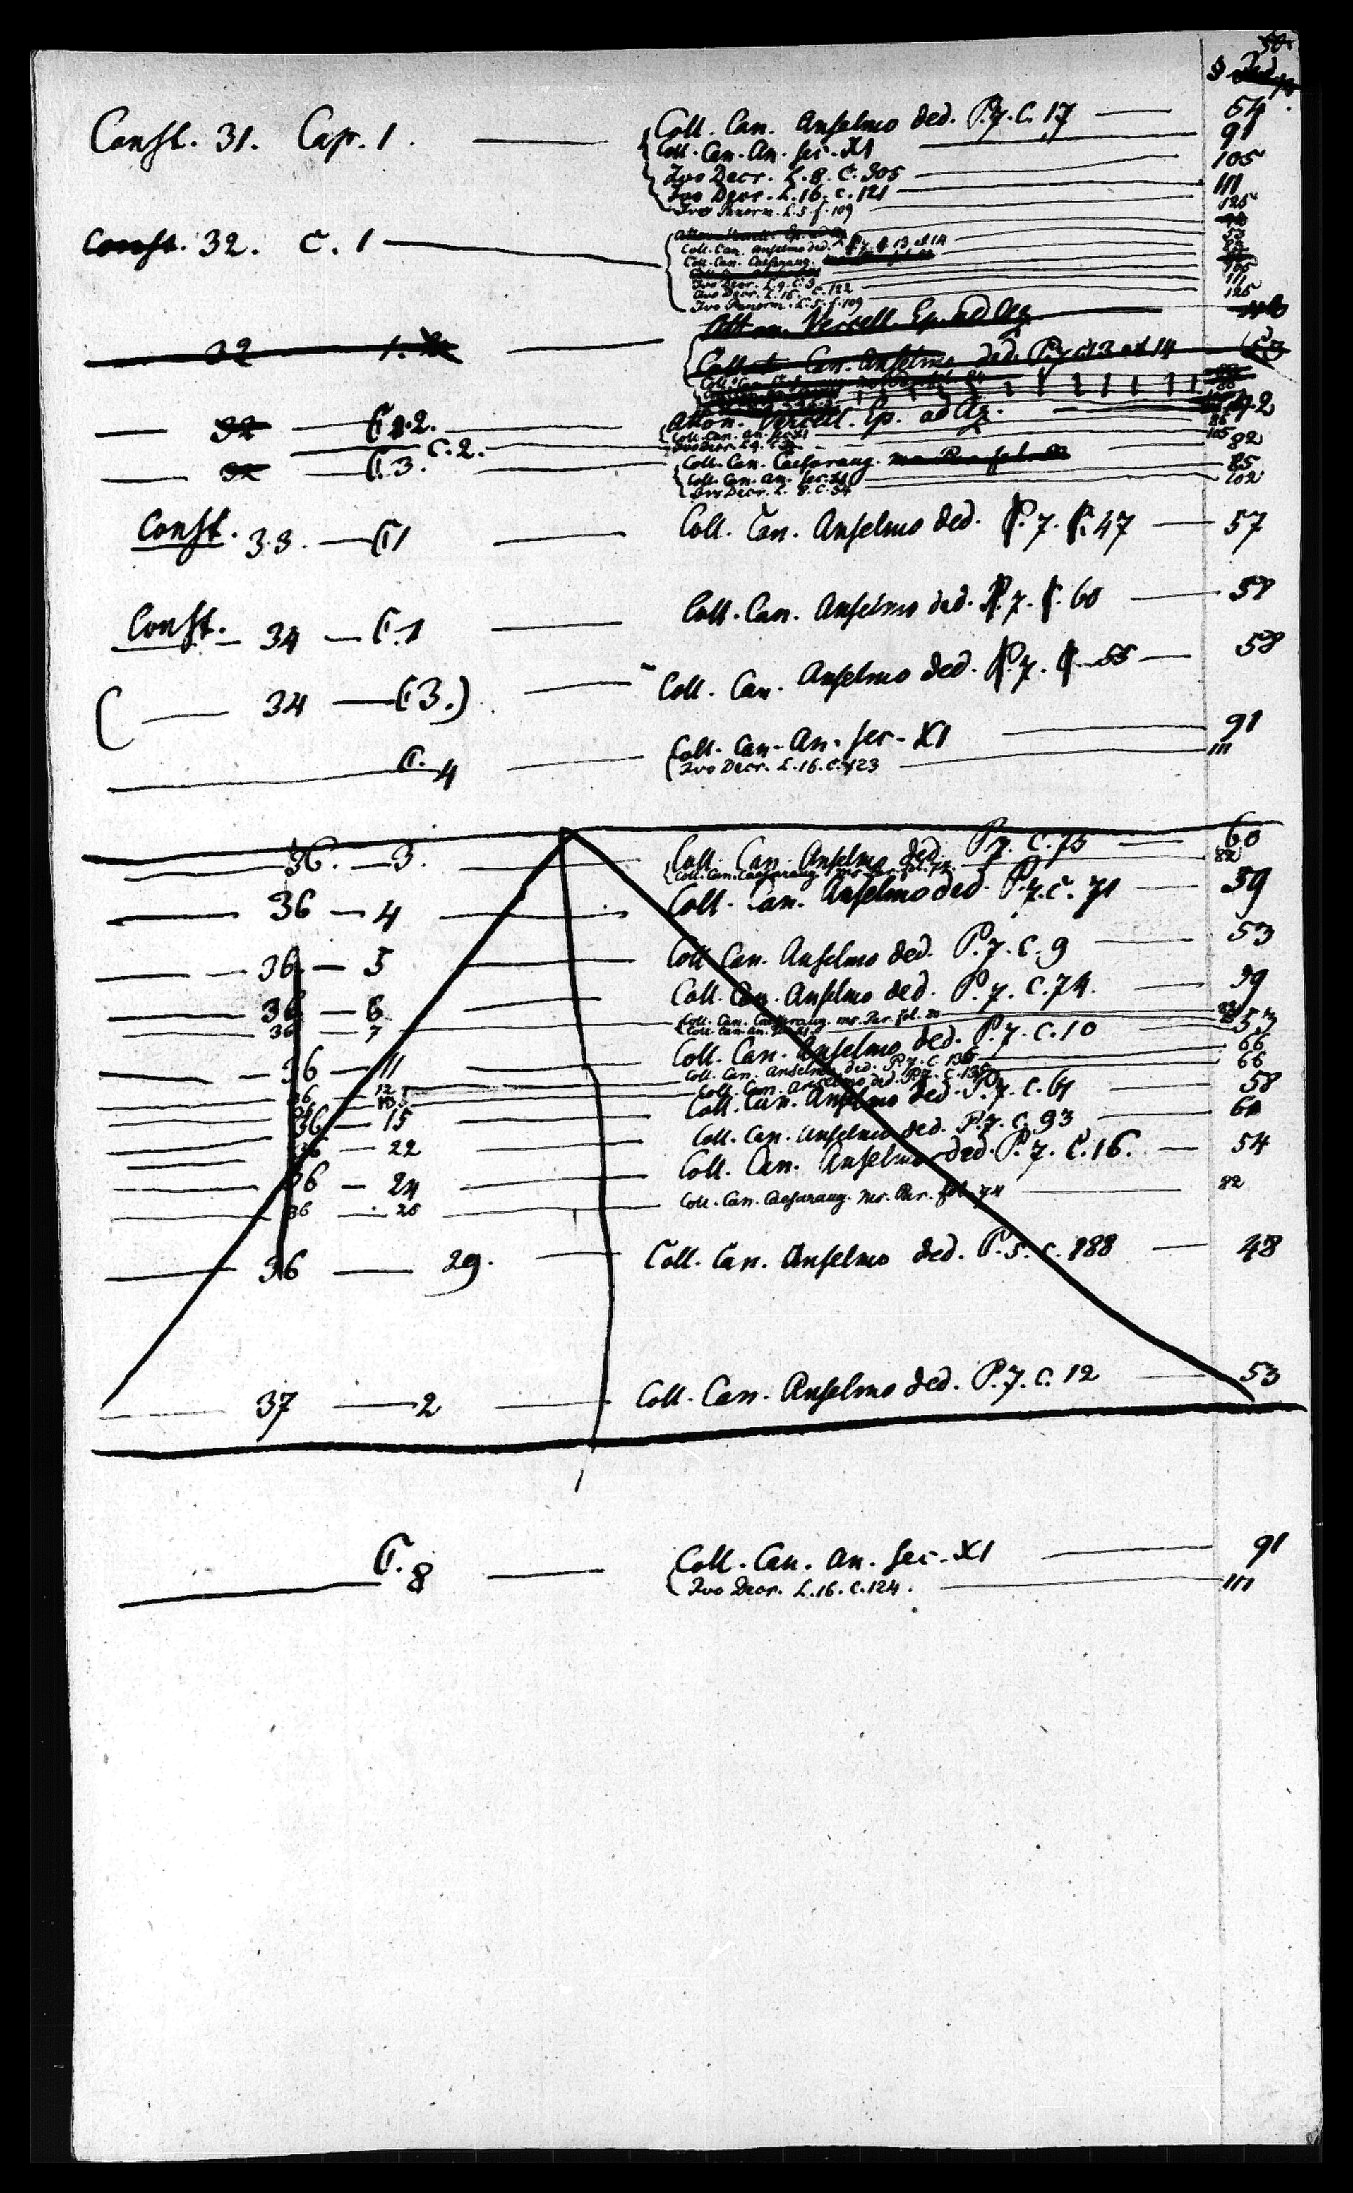 50
Const. 31. Cap. 1. Coll. Can. Anselmo ded. P. 7. C. 17 54
Coll. Can. An. sec. XI 91
Ivo Decr. L. 8. C. 305 105
Ivo Decr. L. 16. c. 121 111
Ivo Panorm. L. 5. f. 109 125
Const. 32. C. 1
Coll. Can. Anselmo ded. P. 7. C. 13 et 14 53
Coll. Can. Caesaraug.
Ivo Decr. L. 16. C. 122 111
Ivo Panorm. L. 5. f. 109 125
Atton. Vercell. Ep. ad Az.
32 1.
Collect. Can. Anselmo ded. P. 7 c 13 et 14 53
32 C. 2. Atton. Vercell. Ep. ad Az. 42
Coll. Can. An. sec. XI
C. 2. 105
32 C. 3. Coll. Can. Caesaraug. 82
Coll. Can. An. sec. XI 85
Ivo Decr. L. 8. C. 34 102
Const. 33. C 1 Coll. Can. Anselmo ded. P. 7. C. 47 57
Const. 34 C. 1 Coll. Can. Anselmo ded. P. 7. C. 60 58
( 34 C 3.) Coll. Can. Anselmo ded. P. 7. C. 55 58
C. 4 Coll. Can. An. sec. XI 91
Ivo Decr. L. 16. C. 123 111
36. 3. Coll. Can. Anselmo ded. P. 7. C. 75 60
Coll. Can. Caesaraug. 82
36 4 Coll. Can. Anselmo ded. P. 7. C. 71 59
36 5 Coll. Can. Anselmo ded. P. 7. C. 9 53
36 6 Coll. Can. Anselmo ded. P. 7. C. 74. 59
36 7 Coll. Can. Caesaraug. ms. Par. fol.
Coll. Can. An.
36 11 Coll. Can. Anselmo ded. P. 7. C. 10 53
36 12 Coll. Can. Anselmo ded. P. 7. C. 66
36 13 Coll. Can. Anselmo ded. P. 7. C. 66
36 15 Coll. Can. Anselmo ded. P. 7. C. 61 58
36 22 Coll. Can. Anselmo ded. P. 7. C. 93
36 24 Coll. Can. Anselmo ded. P. 7. C. 16. 54
36 Coll. Can. Caesaraug. ms. Par. fol. 74 82
36 29. Coll. Can. Anselmo ded. P. 5. C. 188 48
37 2 Coll. Can. Anselmo ded. P. 7. C. 12 53
C. 8 Coll. Can. An. sec. XI 91
Ivo Decr. L. 16. C. 124. 111